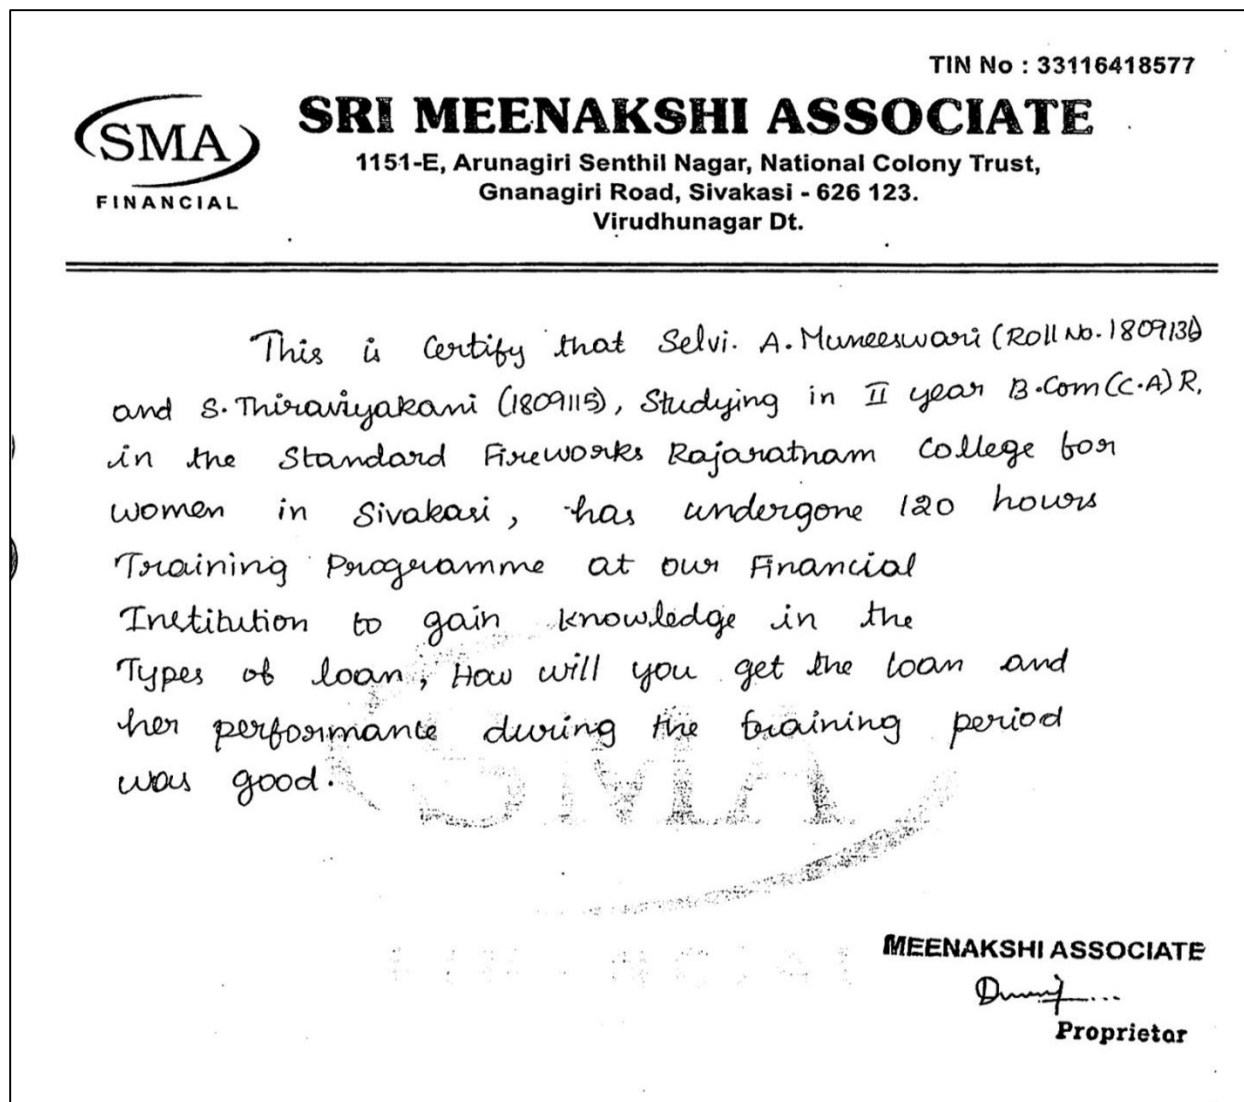 TIN No : 33116418577
SMA
FINANCIAL
SRI MEENAKSHI ASSOCIATE
1151-E, Arunagiri Senthil Nagar, National Colony Trust,
Gnanagiri Road, Sivakasi - 626 123.
Virudhunagar Dt.
This is Certify that Selvi. A. Muneeswari (Roll No.
and S. Thiraviyakani (1809115), Studying in II year B.Com (C.A) R.
in the Standard Fireworks Rajaratnam College for
women in Sivakasi, has undergone 120 hours
Training Programme at our Financial
Institibution to gain knowledge in the
Types of loan, How will you get the loan and
her performance during the training period
was good.
SMA
FINANCIAL
MEENAKSHI ASSOCIATE
Proprietor